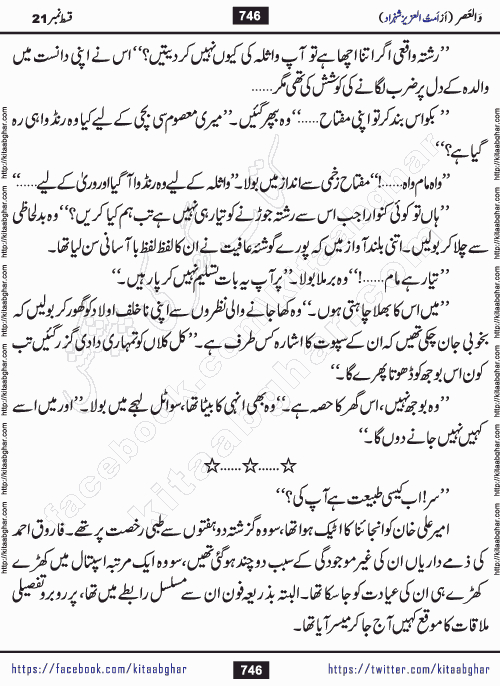 وَالعَصر (اَز اَمتُ العزیز شہزاد) 746 قسط نمبر 21
’’رشتہ واقعی اگر اتنا اچھا ہے تو آپ واثلہ کی کیوں نہیں کر دیتیں؟‘‘ اس نے اپنی دانست میں
والدہ کے دل پر ضرب لگانے کی کوشش کی تھی مگر......
’’بکواس بند کر تو اپنی مفتاح......‘‘ وہ بپھر گئیں۔ ’’میری معصوم سی بچی کے لیے کیا وہ رنڈوا ہی رہ
گیا ہے؟‘‘
’’واہ مام واہ......!‘‘ مفتاح زخمی سے انداز میں بولا۔ ’’واثلہ کے لیے وہ رنڈوا آ گیا اور وریٰ کے لیے......‘‘
’’ہاں تو کوئی کنوارا جب اس سے رشتہ جوڑنے کو تیار ہی نہیں ہے تب ہم کیا کریں؟‘‘ وہ بدلحاظی
سے چلا کر بولیں۔ اتنی بلند آواز میں کہ پورے گوشئہ عافیت نے ان کا لفظ لفظ بآسانی سن لیا تھا۔
’’تیار ہے مام......!‘‘ وہ برملا بولا۔ ’’پر آپ یہ بات تسلیم نہیں کر پا رہیں۔‘‘
’’میں اس کا بھلا چاہتی ہوں۔‘‘ وہ کھا جانے والی نظروں سے اپنی ناخلف اولاد کو گھور کر بولیں کہ
بخوبی جان چکی تھیں کہ ان کے سپوت کا اشارہ کس طرف ہے۔ ’’کل کلاں کو تمہاری دادی گزر گئیں تب
کون اس بوجھ کو ڈھوتا پھرے گا۔‘‘
’’وہ بوجھ نہیں، اس گھر کا حصہ ہے۔‘‘ وہ بھی انہی کا بیٹا تھا، سو اٹل لہجے میں بولا۔ ’’اور میں اسے
کہیں نہیں جانے دوں گا۔‘‘
☆......☆......☆
’’سر! اب کیسی طبیعت ہے آپ کی؟‘‘
امیر علی خان کو انجائنا کا اٹیک ہوا تھا، سو وہ گزشتہ دو ہفتوں سے طبی رخصت پر تھے۔ فاروق احمد
کی ذمے داریاں ان کی غیر موجودگی کے سبب دو چند ہو گئی تھیں، سو وہ ایک مرتبہ اسپتال میں کھڑے
کھڑے ہی ان کی عیادت کو جا سکا تھا۔ البتہ بذریعہ فون ان سے مسلسل رابطے میں تھا، پر روبرو تفصیلی
ملاقات کا موقع کہیں آج جا کر میسر آیا تھا۔
https://facebook.com/kitaabghar 746 https://twitter.com/kitaabghar
http://kitaabghar.com http://kitaabghar.com http://kitaabghar.com http://kitaabghar.com http://kitaabghar.com http://kitaabghar.com
http://kitaabghar.com http://kitaabghar.com http://kitaabghar.com http://kitaabghar.com http://kitaabghar.com http://kitaabghar.com
kitaabghar.com
facebook.com/kitaabghar